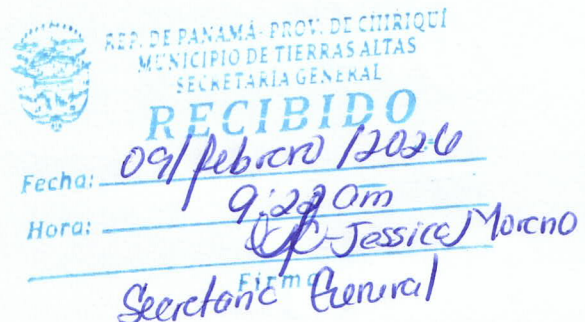 REP. DE PANAMÁ - PROV. DE CHIRIQUÍ
MUNICIPIO DE TIERRAS ALTAS
SECRETARÍA GENERAL
RECIBIDO
Fecha: 09/febrero/2026
Hora: 9:22 am
Jessica Moreno
Firma
General